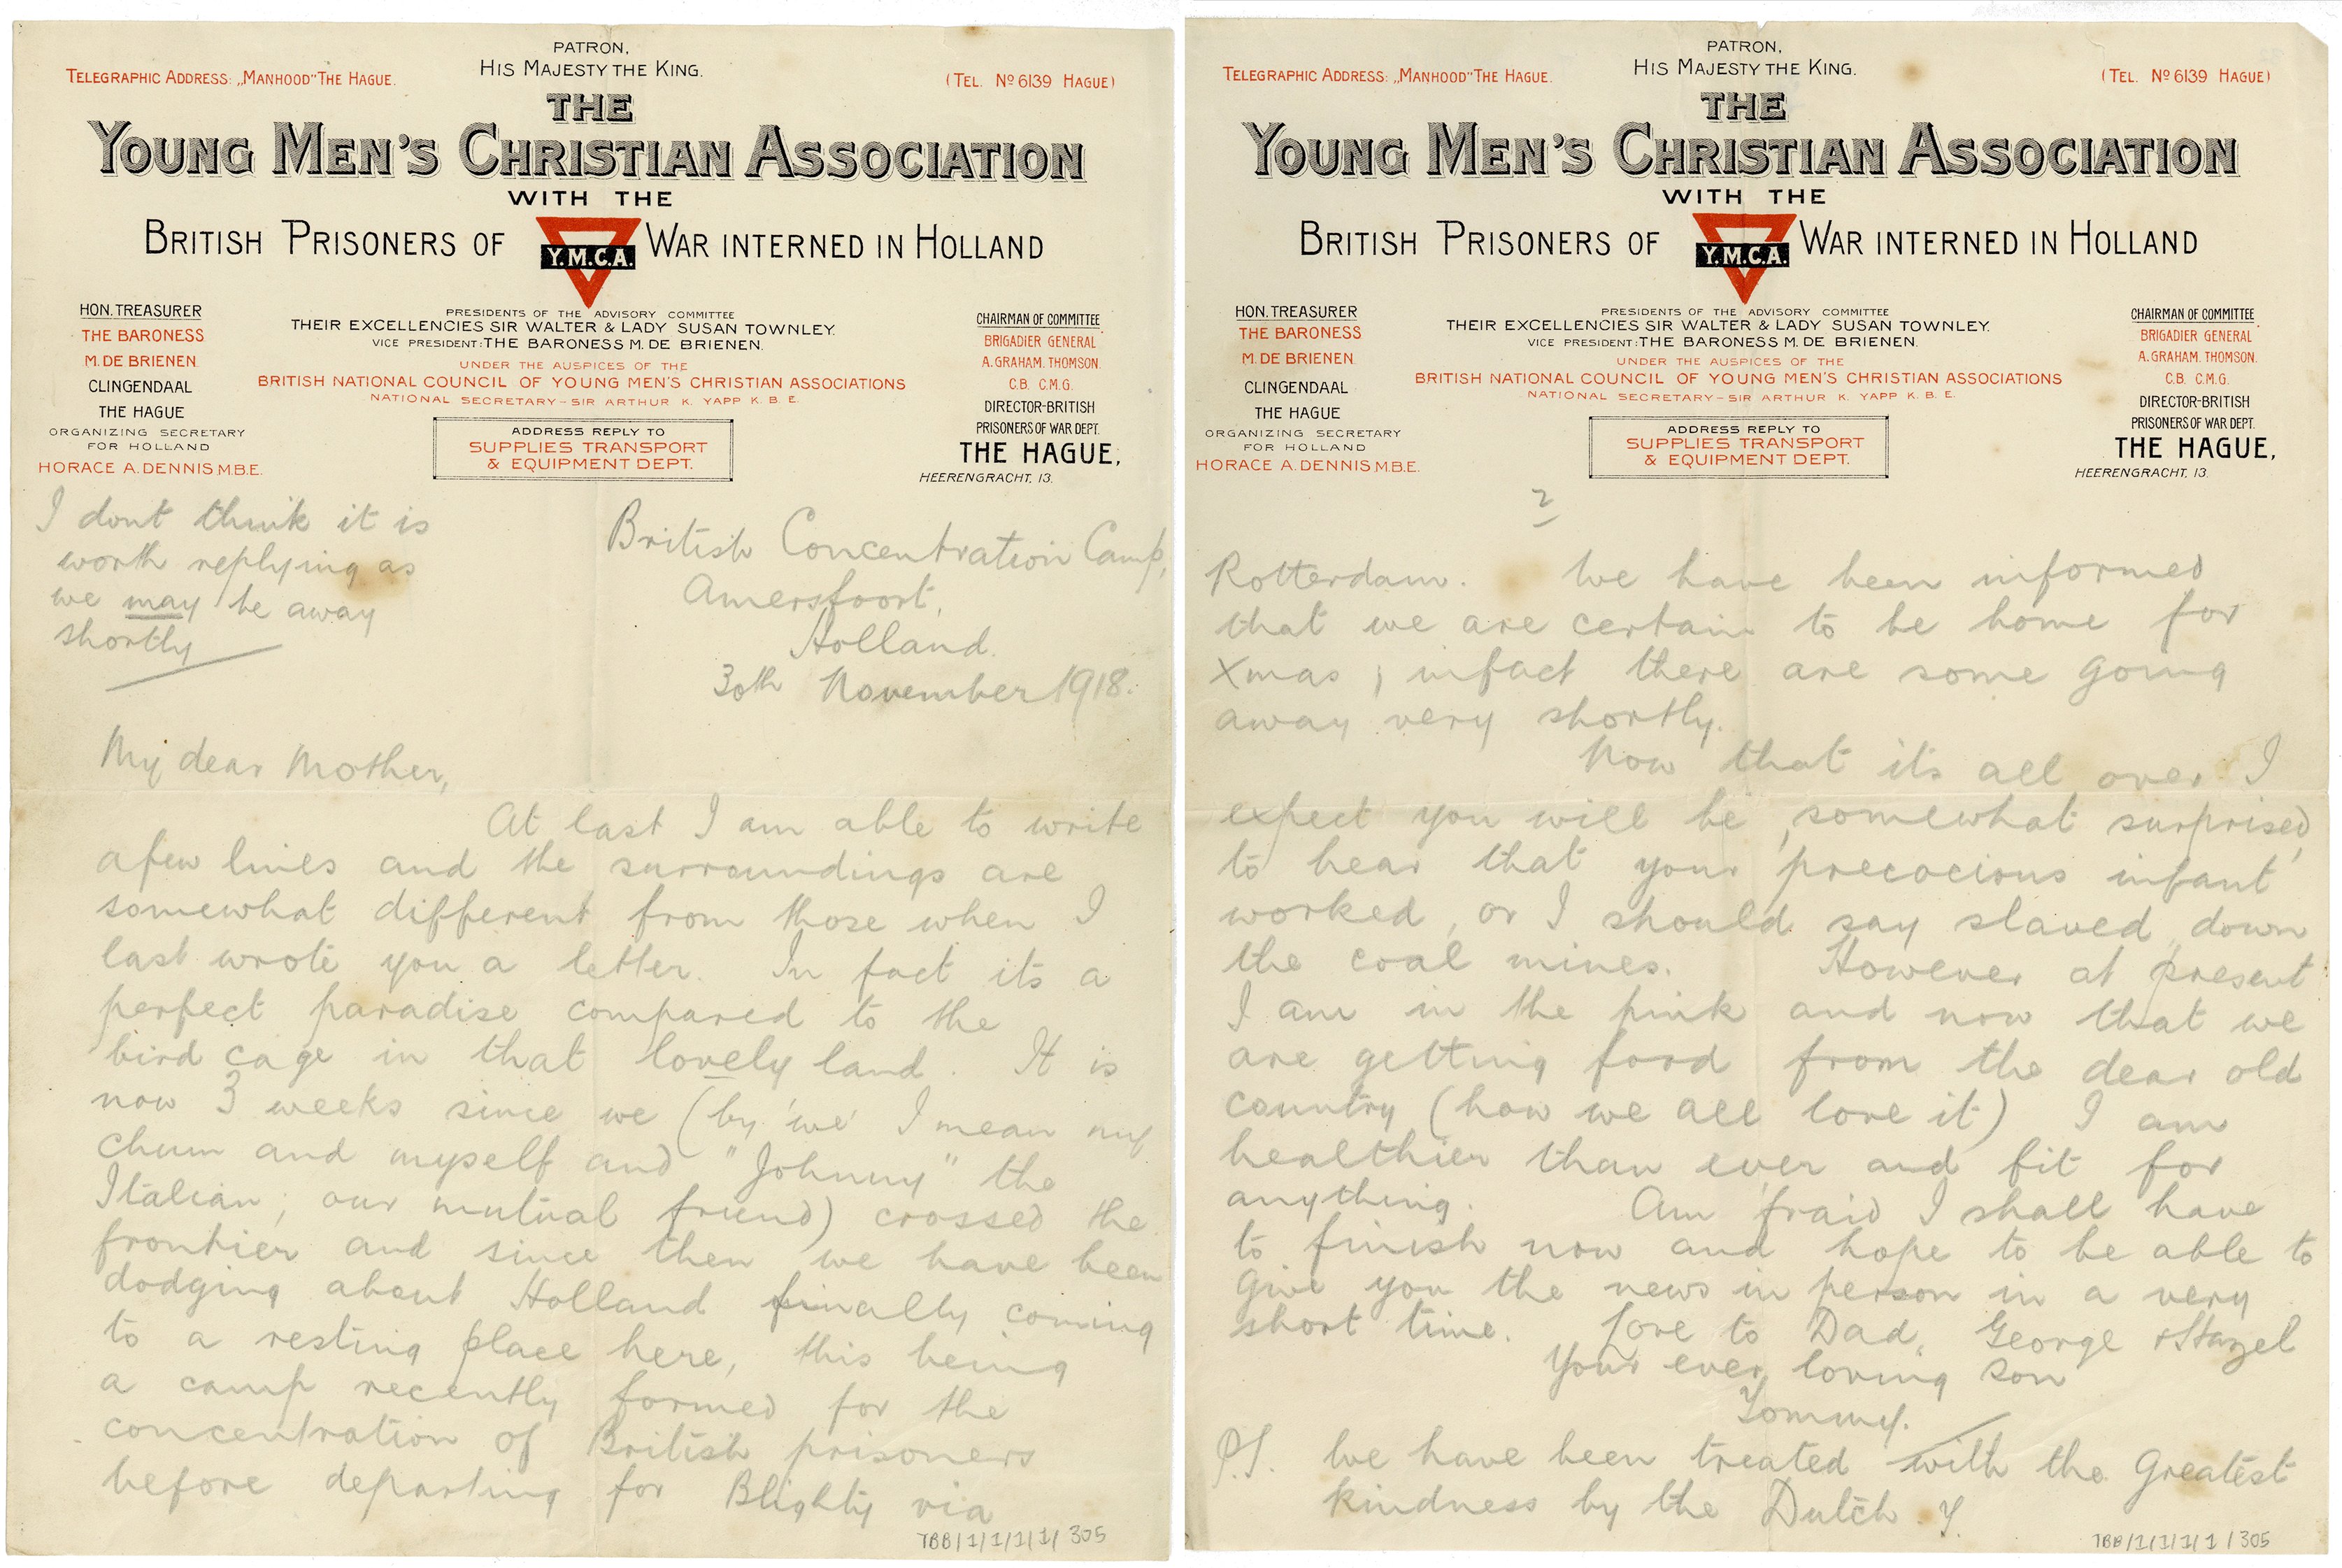 PATRON,
HIS MAJESTY THE KING.
TELEGRAPHIC ADDRESS: „MANHOOD" THE HAGUE.
(TEL. Nº 6139 HAGUE)
THE
YOUNG MEN'S CHRISTIAN ASSOCIATION
WITH THE
BRITISH PRISONERS OF WAR INTERNED IN HOLLAND
Y.M.C.A.
HON. TREASURER
THE BARONESS
M. DE BRIENEN.
CLINGENDAAL
THE HAGUE
ORGANIZING SECRETARY
FOR HOLLAND
HORACE A. DENNIS M.B.E.
PRESIDENTS OF THE ADVISORY COMMITTEE
THEIR EXCELLENCIES SIR WALTER & LADY SUSAN TOWNLEY.
VICE PRESIDENT: THE BARONESS M. DE BRIENEN.
UNDER THE AUSPICES OF THE
BRITISH NATIONAL COUNCIL OF YOUNG MEN'S CHRISTIAN ASSOCIATIONS
NATIONAL SECRETARY – SIR ARTHUR K. YAPP K. B. E.
ADDRESS REPLY TO
SUPPLIES TRANSPORT
& EQUIPMENT DEPT.
CHAIRMAN OF COMMITTEE
BRIGADIER GENERAL
A. GRAHAM. THOMSON.
C.B. C.M.G.
DIRECTOR-BRITISH
PRISONERS OF WAR DEPT.
THE HAGUE,
HEERENGRACHT, 13.
I dont think it is
worth replying as
we may be away
shortly
British Concentration Camp,
Amersfoort,
Holland.
30th November 1918.
My dear Mother,
At last I am able to write
a few lines and the surroundings are
somewhat different from those when I
last wrote you a letter. In fact its a
perfect paradise compared to the
bird cage in that lovely land. It is
now 3 weeks since we (by 'we' I mean my
chum and myself and "Johnny" the
Italian; our mutual friend) crossed the
frontier and since then we have been
dodging about Holland finally coming
to a resting place here, this being
a camp recently formed for the
concentration of British prisoners
before departing for Blighty via
TBB/1/1/1/1/305
PATRON,
HIS MAJESTY THE KING.
TELEGRAPHIC ADDRESS: „MANHOOD" THE HAGUE.
(TEL. Nº 6139 HAGUE)
THE
YOUNG MEN'S CHRISTIAN ASSOCIATION
WITH THE
BRITISH PRISONERS OF WAR INTERNED IN HOLLAND
Y.M.C.A.
HON. TREASURER
THE BARONESS
M. DE BRIENEN.
CLINGENDAAL
THE HAGUE
ORGANIZING SECRETARY
FOR HOLLAND
HORACE A. DENNIS M.B.E.
PRESIDENTS OF THE ADVISORY COMMITTEE
THEIR EXCELLENCIES SIR WALTER & LADY SUSAN TOWNLEY.
VICE PRESIDENT: THE BARONESS M. DE BRIENEN.
UNDER THE AUSPICES OF THE
BRITISH NATIONAL COUNCIL OF YOUNG MEN'S CHRISTIAN ASSOCIATIONS
NATIONAL SECRETARY – SIR ARTHUR K. YAPP K. B. E.
ADDRESS REPLY TO
SUPPLIES TRANSPORT
& EQUIPMENT DEPT.
CHAIRMAN OF COMMITTEE
BRIGADIER GENERAL
A. GRAHAM. THOMSON.
C.B. C.M.G.
DIRECTOR-BRITISH
PRISONERS OF WAR DEPT.
THE HAGUE,
HEERENGRACHT, 13.
2
Rotterdam. We have been informed
that we are certain to be home for
Xmas; infact there are some going
away very shortly.
Now that its all over I
expect you will be, somewhat surprised,
to hear that your 'precocious infant'
worked, or I should say slaved, down
the coal mines. However at present
I am in the pink and now that we
are getting food from the dear old
country (how we all love it) I am
healthier than ever and fit for
anything. Am 'fraid I shall have
to finish now and hope to be able to
give you the news in person in a very
short time. Love to Dad, George & Hazel
Your ever loving son
Tommy.
P.S. We have been treated with the greatest
kindness by the Dutch. T.
TBB/1/1/1/1/305